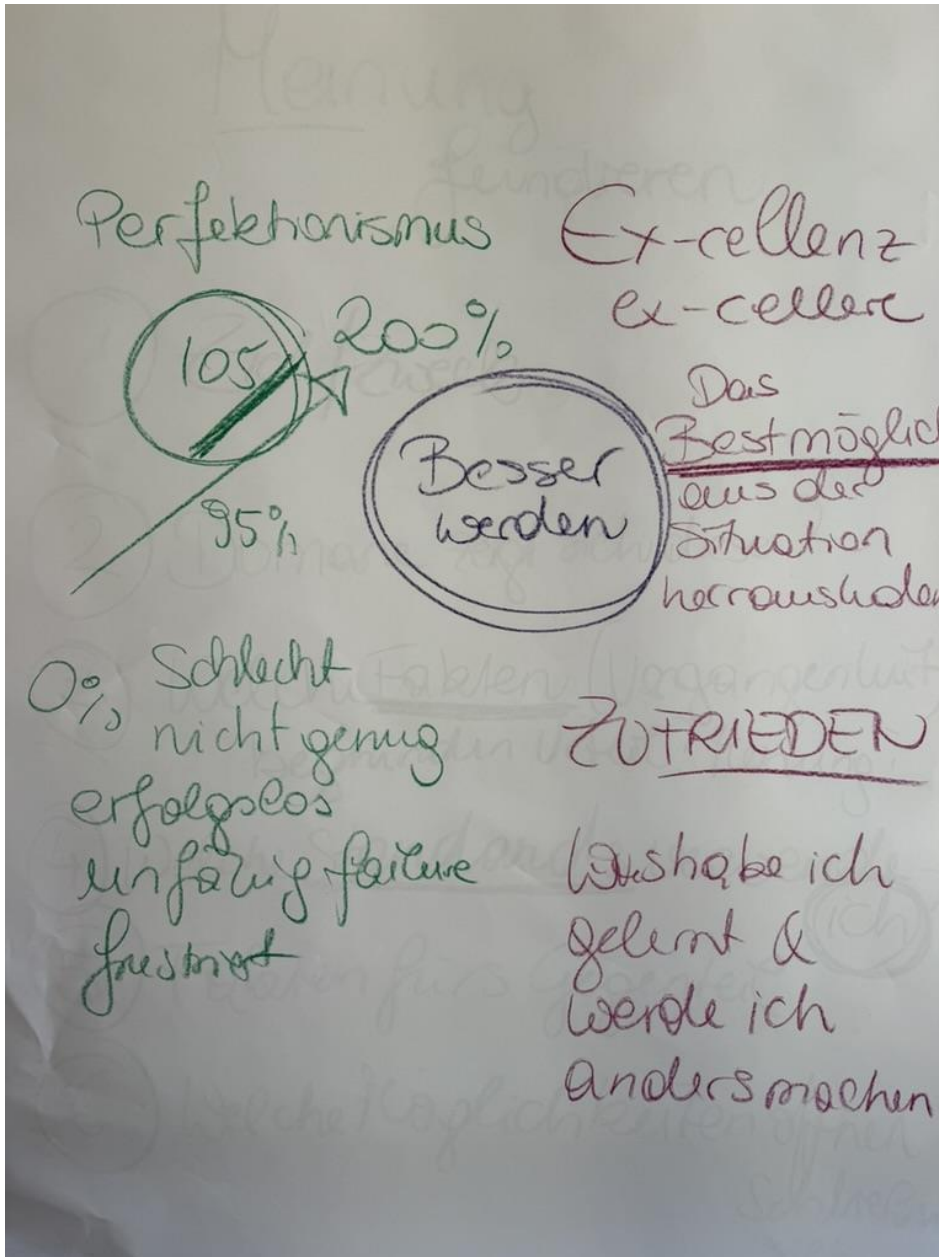 Perfektionismus
105
200%
95%
0% Schlecht
nicht genug
erfolgslos
unfähig failure
frustriert
Besser
werden
Ex-cellenz
ex-cellere
Das
Bestmöglich
aus der
Situation
herrausholen
ZUFRIEDEN
Was habe ich
gelernt &
werde ich
anders machen
Meinung
fundieren
Fakten (Vergangenheit)
ich